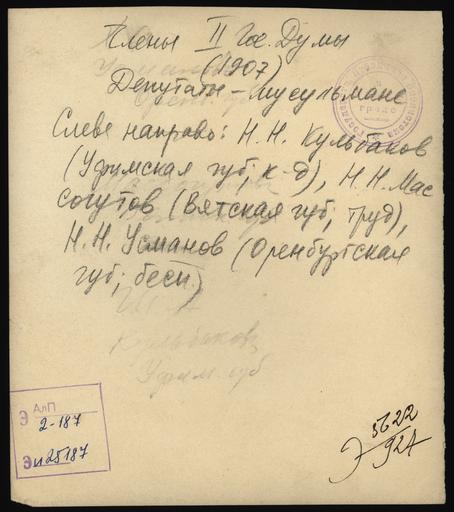 Члены II Гос. Думы
(1907)
Депутаты – мусульмане
Слева направо: Н.Н. Кульбаков
(Уфимская губ; к-д), Н.Н. Мас
согутов (Вятская губ; труд),
Н.Н. Усманов (Оренбургская
губ; бесп.)
Кульбаков
Уфим. губ
АлП
Э 2-187
Эи25187
Э 5622/924